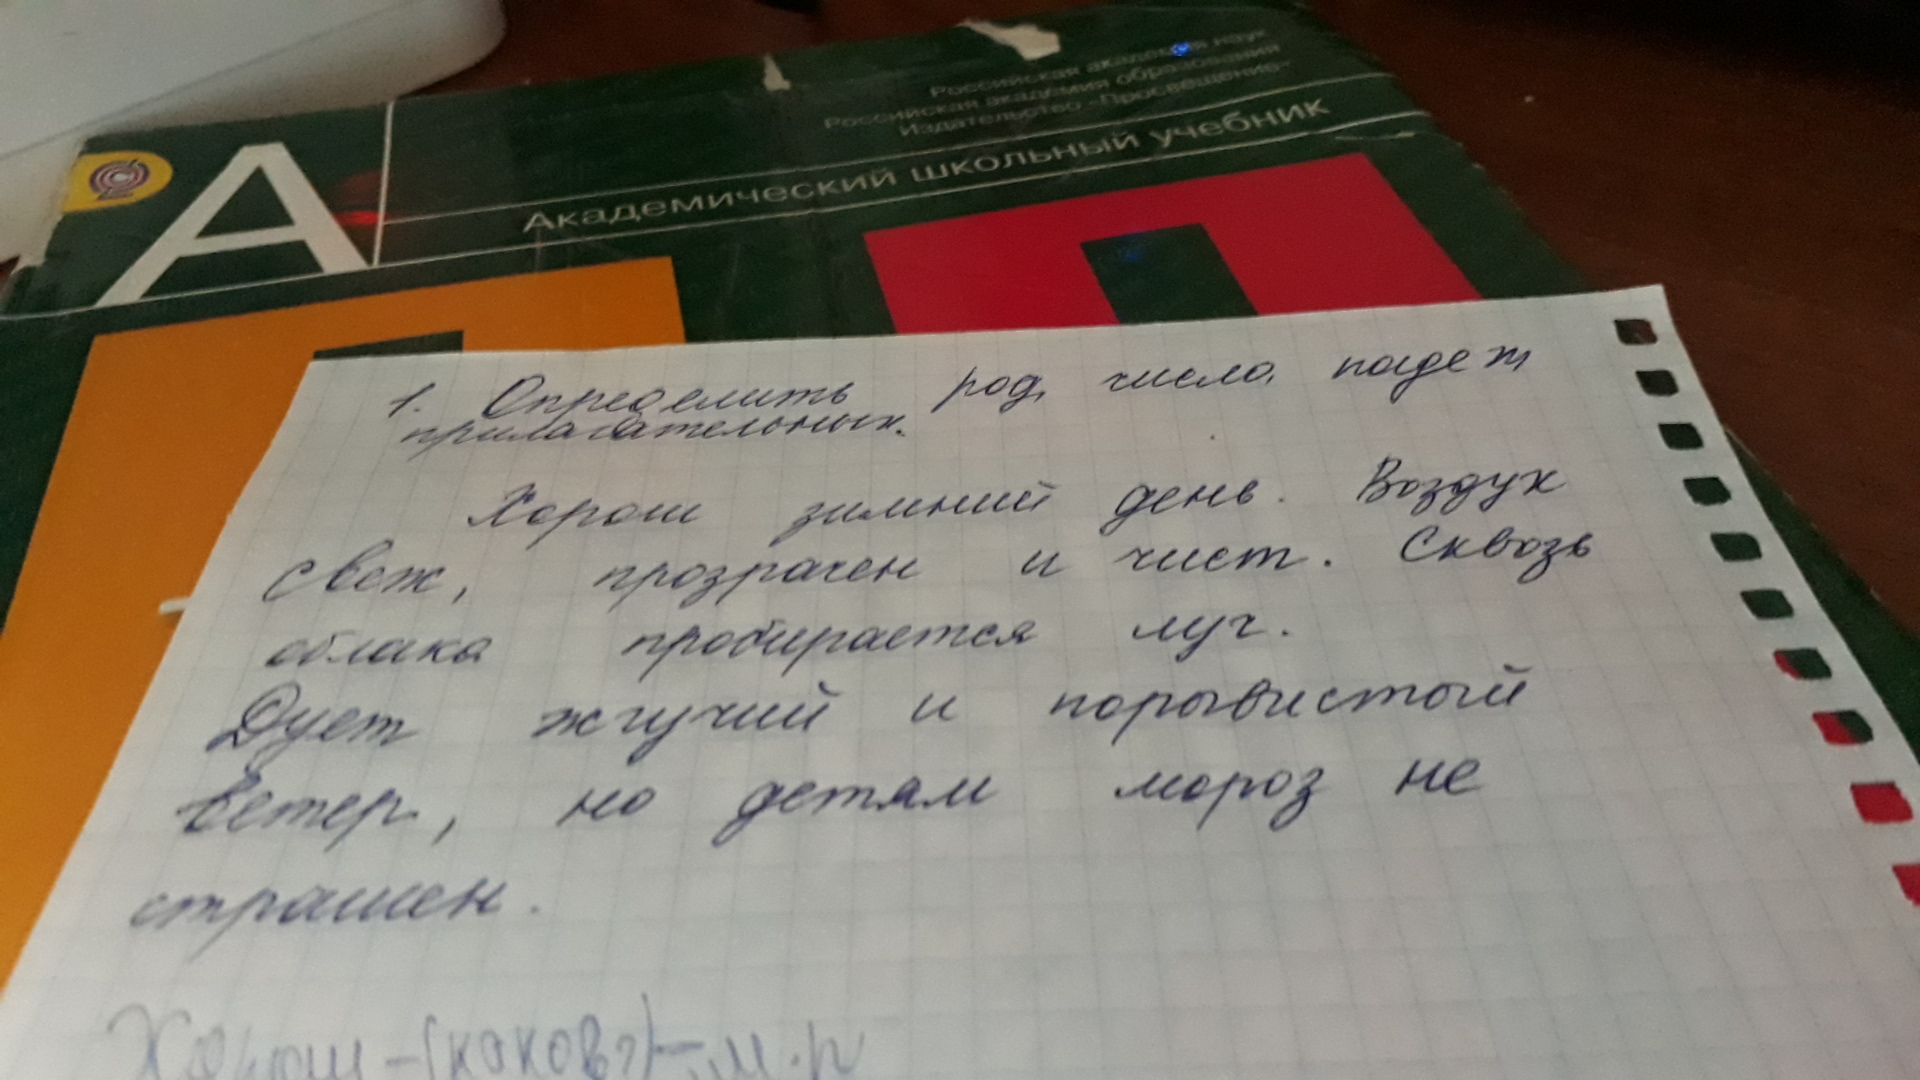 Российская академия наук
Российская академия образования
Издательство «Просвещение»
Академический школьный учебник
А
1. Определить род, число, падеж
прилагательных.
Хорош зимний день. Воздух
свеж, прозрачен и чист. Сквозь
облака пробирается луч.
Дует жгучий и порывистый
ветер, но детям мороз не
страшен.
Хорош - (каков?) - м.р